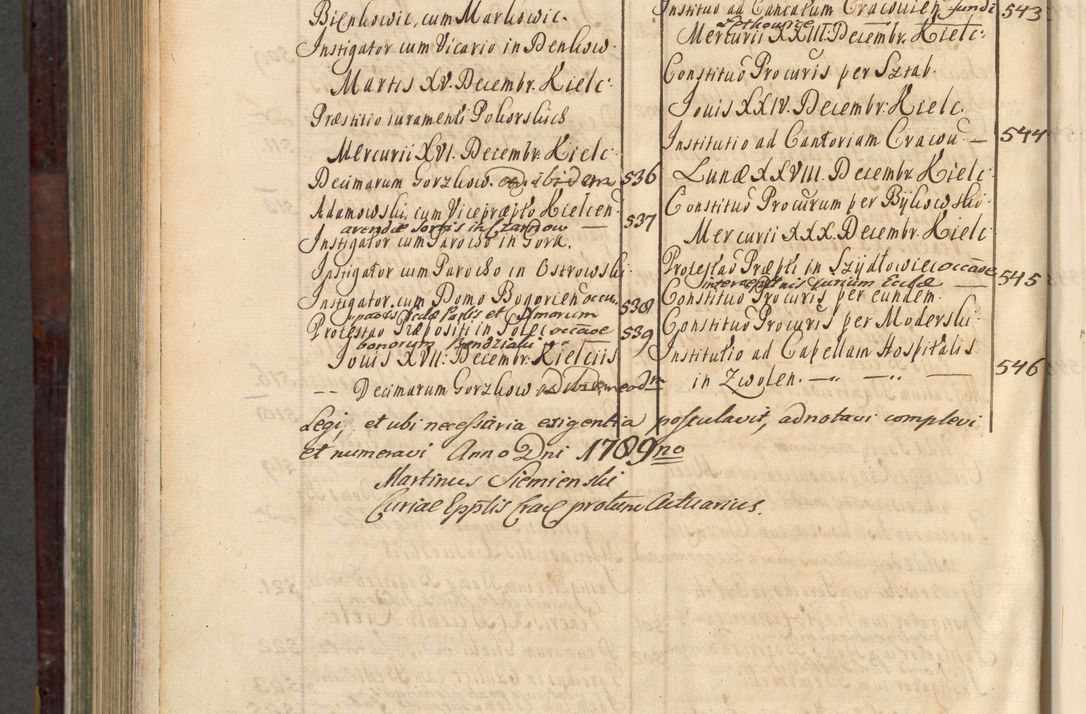 Bienkowic, cum Markowic.
Instigator cum Vicario in Denkow.
Martis XV. Decembr. Kielc.
Præstitio iuramenti
Mercurii XVI. Decembr. Kielc.
Decimarum Gorzkow. ibidem 536
Adamowski, cum Vicepræpto Kielcen.
arendæ sortis in Czarnow — 537
Instigator cum Parocho in Gora.
Instigator cum Parocho in Ostrowski
Instigator cum Domo Bogorien occne 538
et
Protestao Præpositi in Solec occaoe 539
bonorum
Jouis XVII. Decembr. Kielciis
-- Decimarum Gorzkow ibidem eodm
Institio ad Cancatum Cracouien fundi 543
Mercurii XXIII. Decembr. Kielc.
Constituo Procuris per Sztab.
Jouis XXIV. Decembr. Kielc.
Institutio ad Cantoriam Cracou — 544
Lunæ XXVIII. Decembr. Kielc.
Constituo Procurum per Bykowski.
Mercurii XXX. Decembr. Kielc.
Protestao Præpti in Szydłowiec occaoe 545
Constituo Procuris per eundem.
Constituo Procuris per Moderski.
Institutio ad Capellam Hospitalis
in Zwolen. — „ — „ — 546
Legi, et ubi necessaria exigentia postulavit, adnotavi complevi
et numeravi Anno Dni 1789no
Martinus Siemienski
Curiae Epplis Crac protunc Actuarius.